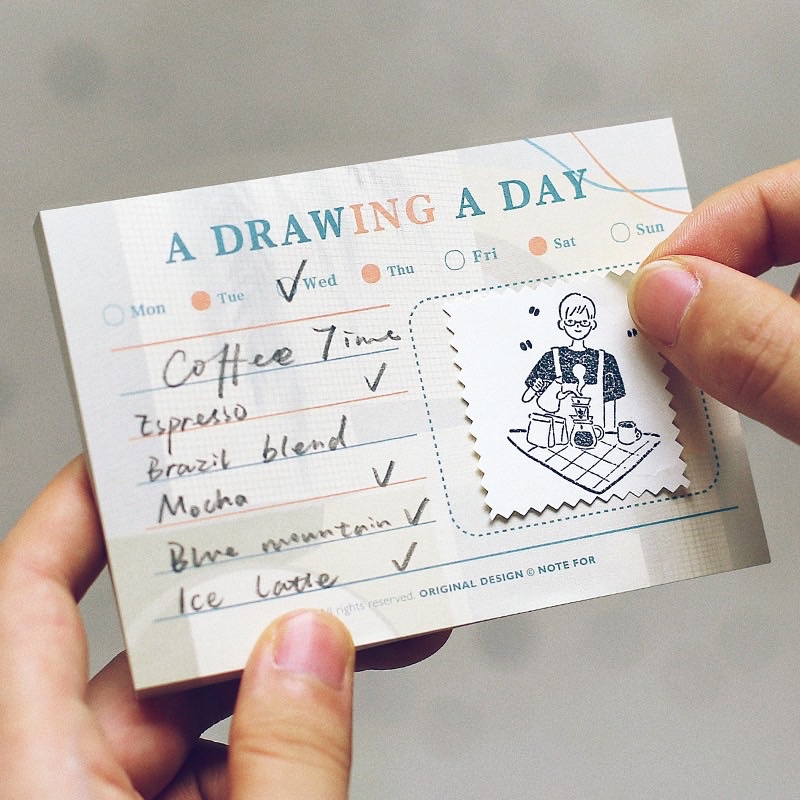 A DRAWING A DAY
Mon Tue Wed Thu Fri Sat Sun
Coffee Time
Espresso ✓
Brazil blend
Mocha ✓
Blue mountain ✓
Ice Latte ✓
All rights reserved. ORIGINAL DESIGN © NOTE FOR